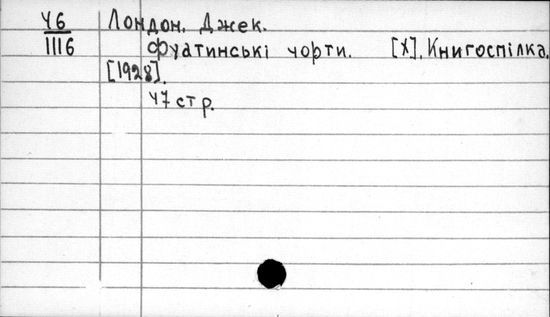 46 Лондон, Джек.
1116 Фуатинські чорти. [Х], Книгоспілка,
[1928].
47 стр.